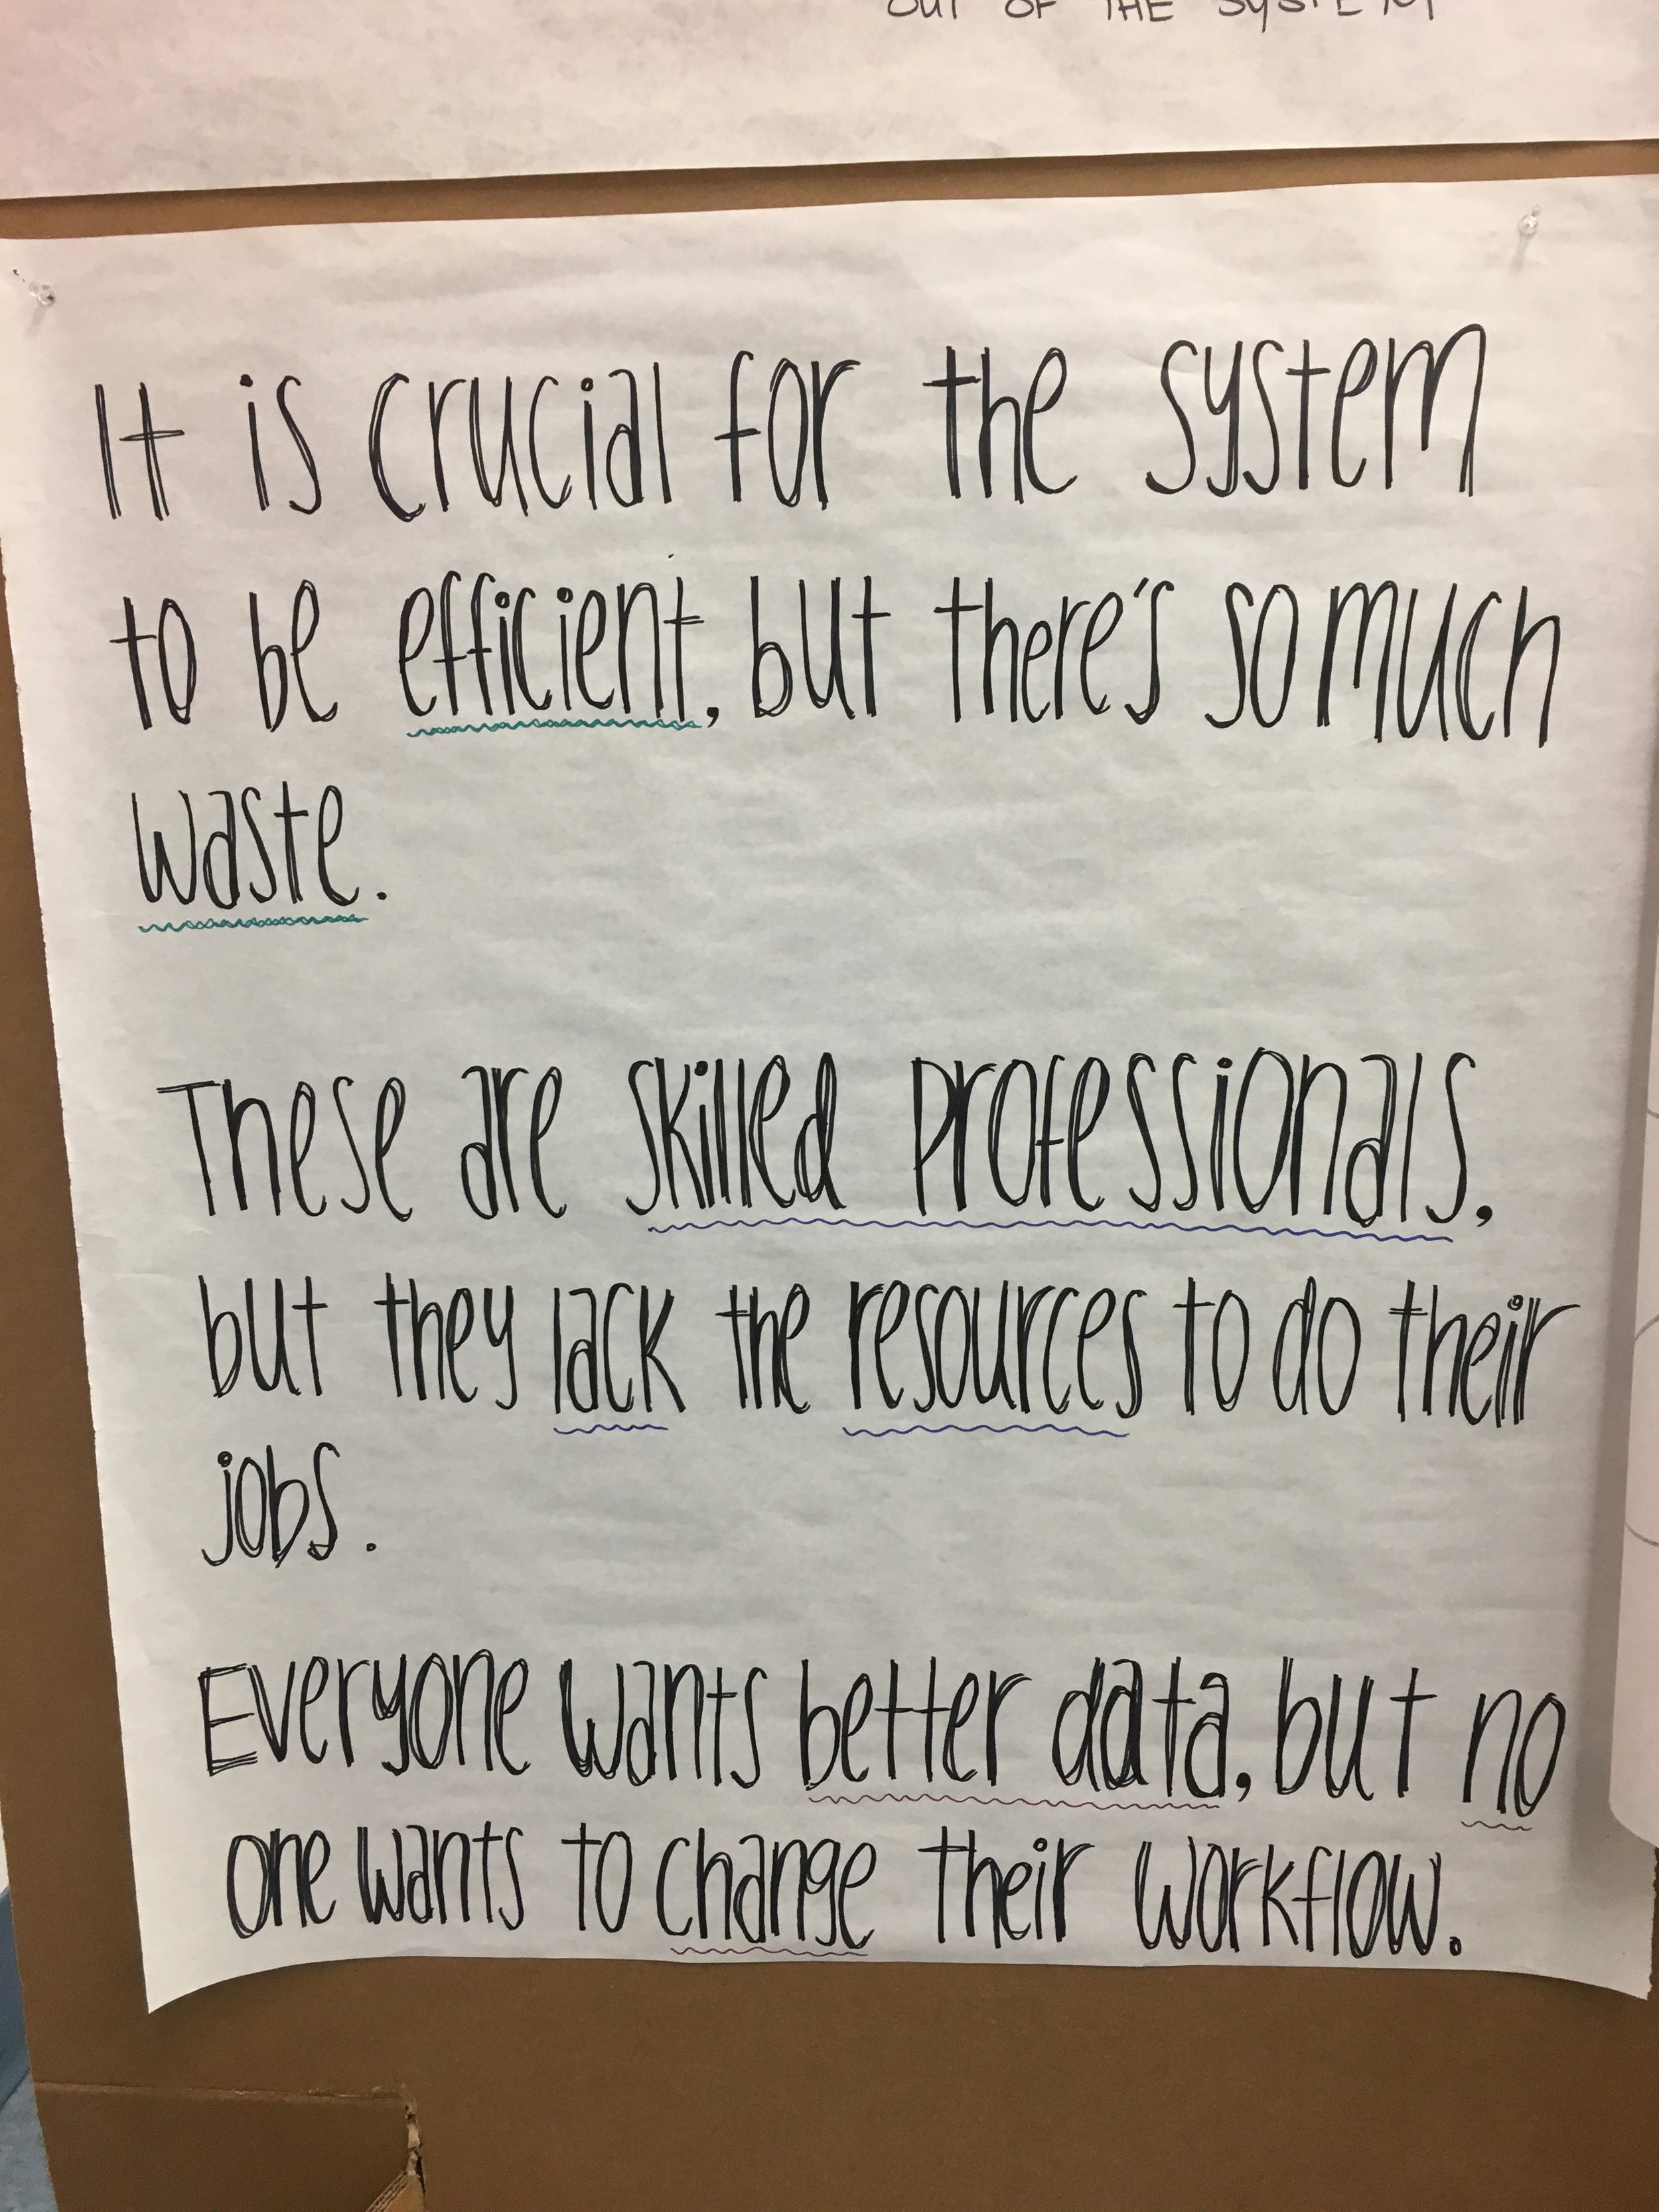 OUT OF THE SYSTEM
It is crucial for the system
to be efficient, but there's so much
waste.
These are skilled professionals,
but they lack the resources to do their
jobs.
Everyone wants better data, but no
one wants to change their workflow.